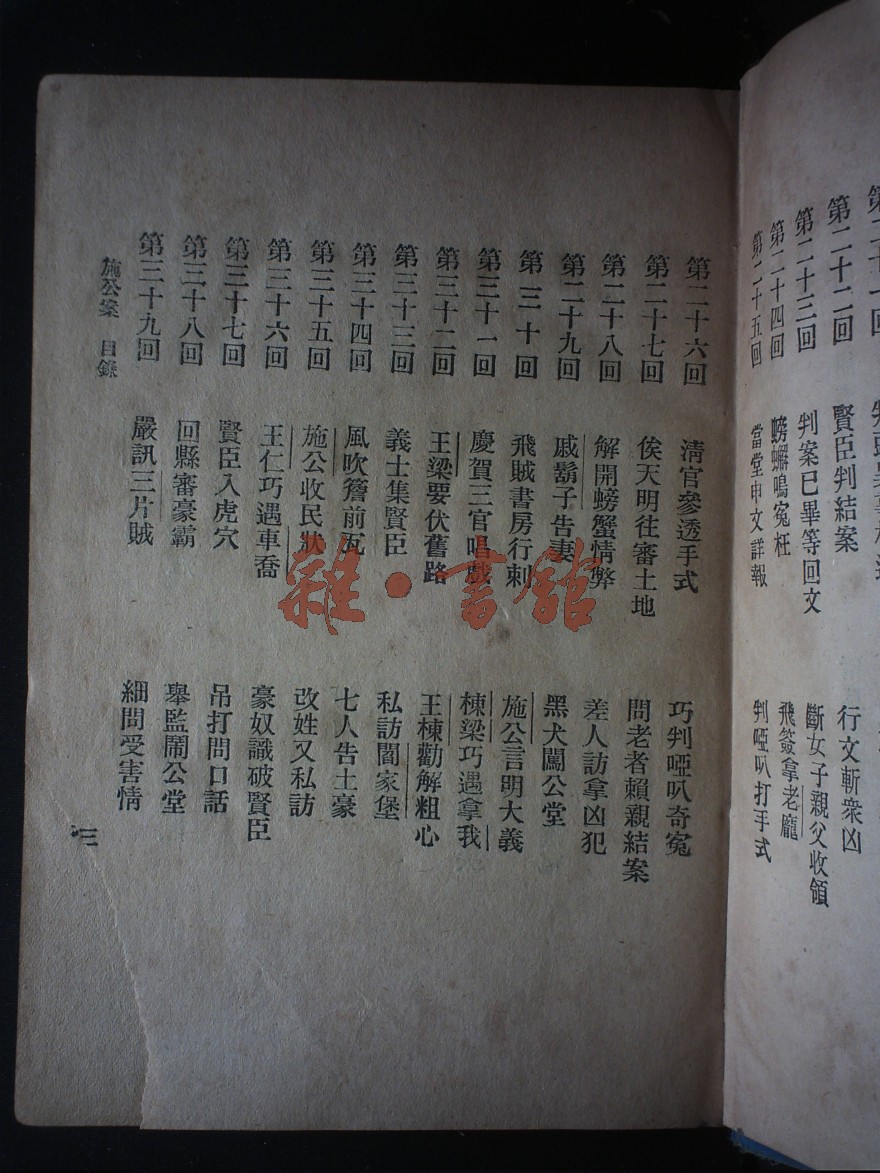 第二十二回 賢臣判結案 行文斬衆凶
第二十三回 判案已畢等回文 斷女子親父收領
第二十四回 螃蠏鳴冤枉 飛簽拿老龐
第二十五回 當堂申文詳報 判啞叭打手式
第二十六回 淸官參透手式 巧判啞叭奇冤
第二十七回 俟天明往審土地 問老者賴親結案
第二十八回 解開螃蟹情弊 差人訪拿凶犯
第二十九回 戚鬍子告妻 黑犬闖公堂
第三十回 飛賊書房行刺 施公言明大義
第三十一回 慶賀三官唱戲 棟梁巧遇拿我
第三十二回 王梁要伏舊路 王棟勸解粗心
第三十三回 義士集賢臣 私訪閻家堡
第三十四回 風吹簷前瓦 七人告土豪
第三十五回 施公收民狀 改姓又私訪
第三十六回 王仁巧遇車喬 豪奴識破賢臣
第三十七回 賢臣入虎穴 吊打問口話
第三十八回 回縣審豪霸 舉監鬧公堂
第三十九回 嚴訊三片賊 細問受害情
施公案 目錄
三
雜·書館